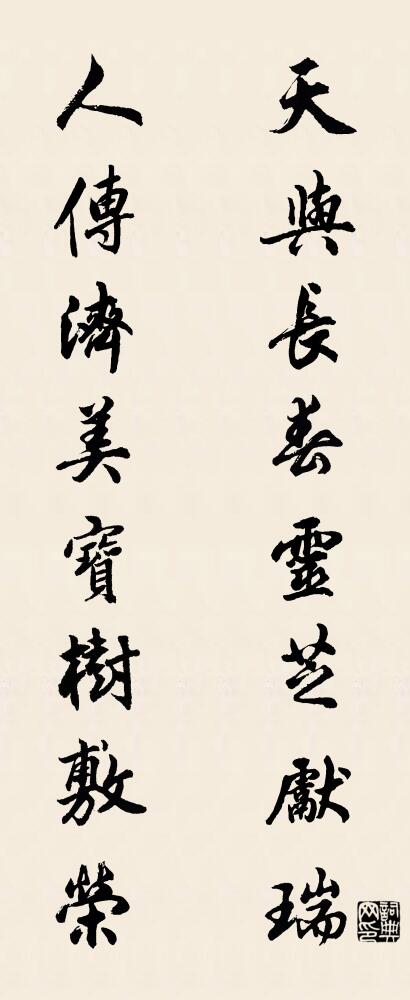 天與長春靈芝獻瑞
人傳濟美寶樹敷榮
詞典網印